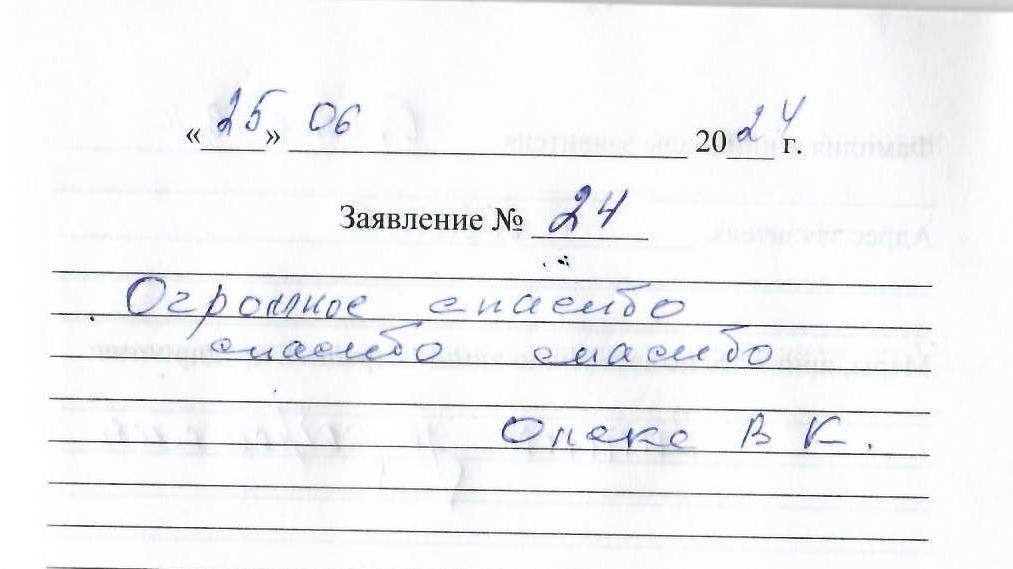 «25» 06 2024 г.
Заявление № 24
Огромное спасибо
спасибо спасибо
В К.